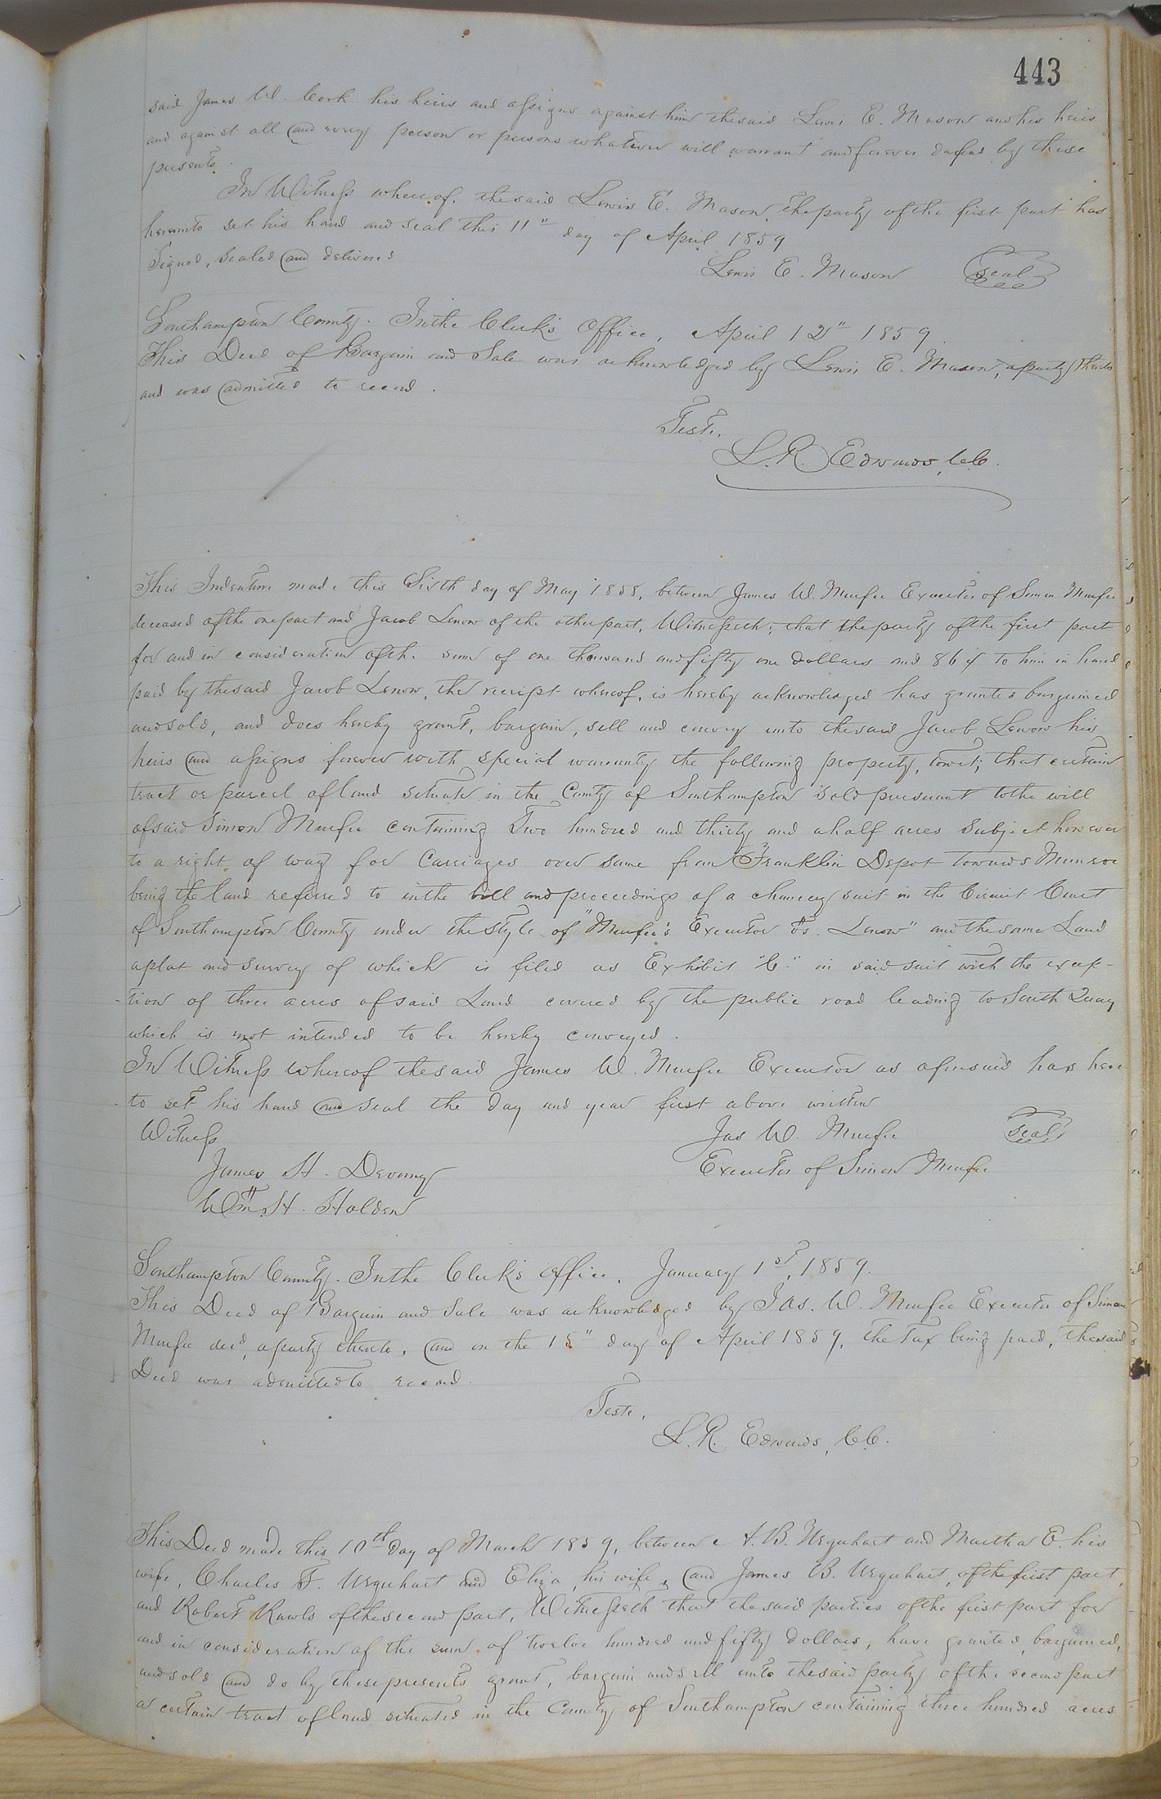 443
said James W. Cook his heirs and assigns against him the said Lewis E. Mason and his heirs
and against all and every person or persons whatever will warrant and forever defend by these
presents.
In Witness whereof, the said Lewis E. Mason, the party of the first part has
hereunto set his hand and seal this 11" day of April 1859
Signed, Sealed and delivered
Lewis E. Mason Seal
Southampton County. In the Clerk's Office, April 12" 1859.
This Deed of Bargain and Sale was acknowledged by Lewis E. Mason, a party thereto
and was admitted to record.
Teste,
L. R. Edwards, C.C.
This Indenture made this Sixth day of May 1858, between James W. Murfee Executor of Simon Murfee
deceased of the one part and Jacob Lenow of the other part, Witnesseth; that the party of the first part
for and in consideration of the sum of one thousand and fifty one dollars and 86 ¢ to him in hand
paid by the said Jacob Lenow, the receipt whereof, is hereby acknowledged has granted bargained
and sold, and does hereby grant, bargain, sell and convey unto the said Jacob Lenow his
heirs and assigns forever with special warranty the following property, towit; that certain
tract or parcel of land situate in the County of Southampton sold pursuant to the will
of said Simon Murfee containing Two hundred and thirty and a half acres Subject however
to a right of way for Carriages over same from Franklin Depot towards Munroe
being the land referred to in the bill and proceedings of a chancery suit in the Circuit Court
of Southampton County under the style of "Murfee's Executor vs. Lenow" and the same Land
a plat and survey of which is filed as Exhibit "C." in said suit with the excep-
-tion of three acres of said Land covered by the public road leading to South Quay
which is not intended to be hereby conveyed.
In Witness whereof the said James W. Murfee Executor as aforesaid has here
to set his hand and seal the day and year first above written
Witness Jas W. Murfee Seal
James H. Executor of Simon Murfee
Wm. H. Holden
Southampton County. In the Clerk's Office, January 1st, 1859.
This Deed of Bargain and Sale was acknowledged by Jas. W. Murfee Executor of Simon
Murfee decd, a party thereto, and on the 18" day of April 1859, the Tax being paid, the said
Deed was admitted to record.
Teste,
L. R. Edwards, C.C.
This Deed made this 10th day of March 1859, between A. B. Urquhart and Martha E. his
wife, Charles F. Urquhart and Eliza, his wife, and James B. Urquhart, of the first part,
and Robert Rawls of the second part, Witnesseth that the said parties of the first part for
and in consideration of the sum of twelve hundred and fifty dollars, have granted, bargained,
and sold and do by these presents grant, bargain and sell unto the said party of the second part
a certain tract of land situated in the County of Southampton containing three hundred acres